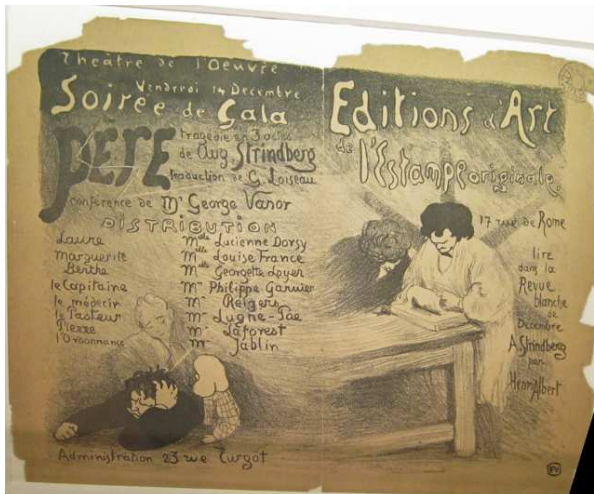 Théâtre de l'Oeuvre
Vendredi 14 Decembre
Soirée de Gala
PÈRE
tragédie en 3 actes
de Aug Strindberg
traduction de G. Loiseau
conférence de Mr George Vanor
DISTRIBUTION
Laure Melle Lucienne Dorsy
Marguerite Melle Louise France
Berthe Melle Georgette Loyer
le Capitaine Mr Philippe Garnier
le médecin Mr Reigers
le Pasteur Mr Lugné-Poe
Pierre Mr Laforest
l'Ordonnance Mr Jablin
Administration 23 rue Turgot
Editions d'Art
de l'Estampe originale
17 rue de Rome
lire
dans la
Revue
blanche
de
Decembre
A. Strindberg
par
Henri Albert